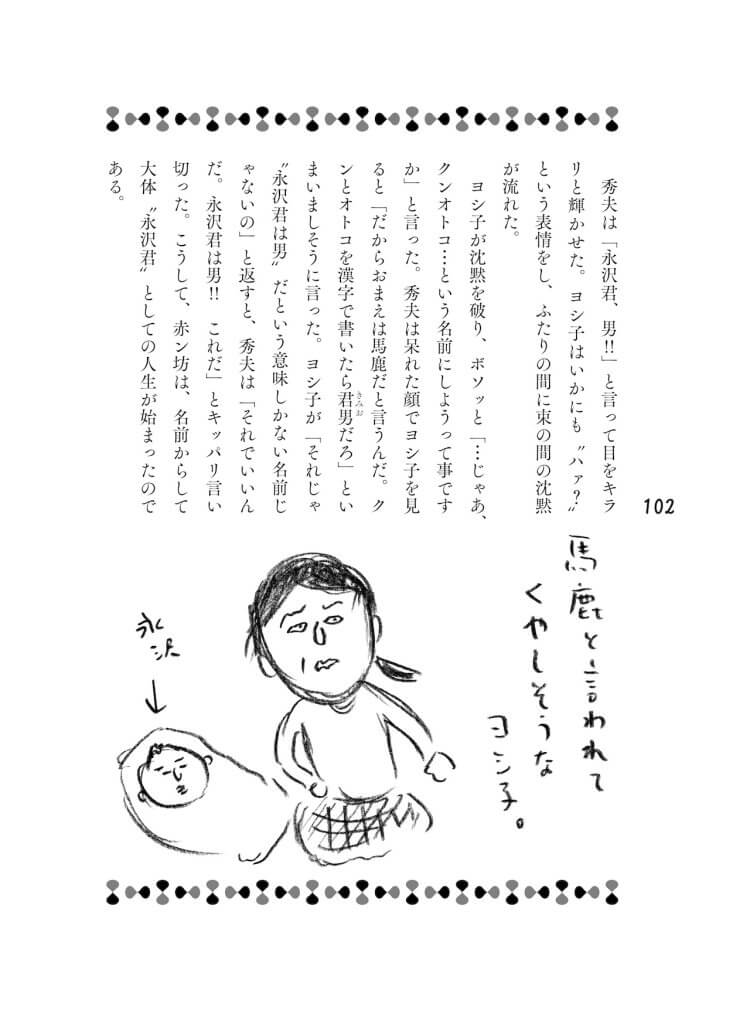 秀夫は「永沢君、男!!」と言って目をキラ
リと輝かせた。ヨシ子はいかにも〝ハァ?〟
という表情をし、ふたりの間に束の間の沈黙
が流れた。
ヨシ子が沈黙を破り、ボソッと「…じゃあ、
クンオトコ…という名前にしようって事です
か」と言った。秀夫は呆れた顔でヨシ子を見
ると「だからおまえは馬鹿だと言うんだ。ク
ンとオトコを漢字で書いたら君男だろ」とい
きみお
まいましそうに言った。ヨシ子が「それじゃ
〝永沢君は男〟だという意味しかない名前じ
ゃないの」と返すと、秀夫は「それでいいん
だ。永沢君は男!! これだ」とキッパリ言い
切った。こうして、赤ン坊は、名前からして
大体〝永沢君〟としての人生が始まったので
ある。
102
馬鹿と言われて
くやしそうな
ヨシ子。
永沢